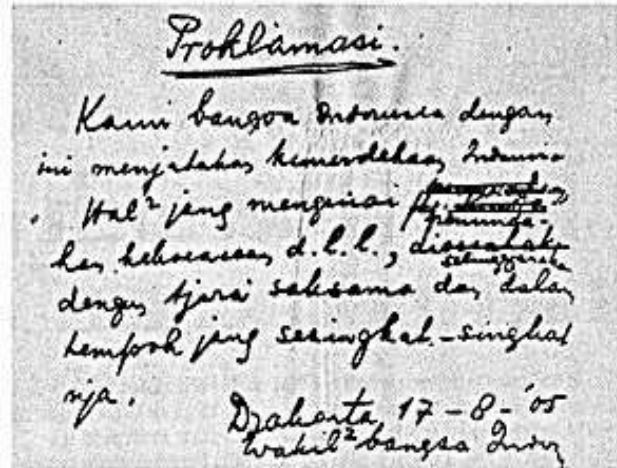 Proklamasi.
Kami bangsa Indonesia dengan
ini menjatakan kemerdekaan Indonesia
. Hal² jang mengenai
pemindahan
kekoeasaan d.l.l.,
diselenggarakan
dengan tjara saksama dan dalam
tempoh jang sesingkat-singkat
nja.
Djakarta, 17 - 8 - '05
Wakil² bangsa Indon